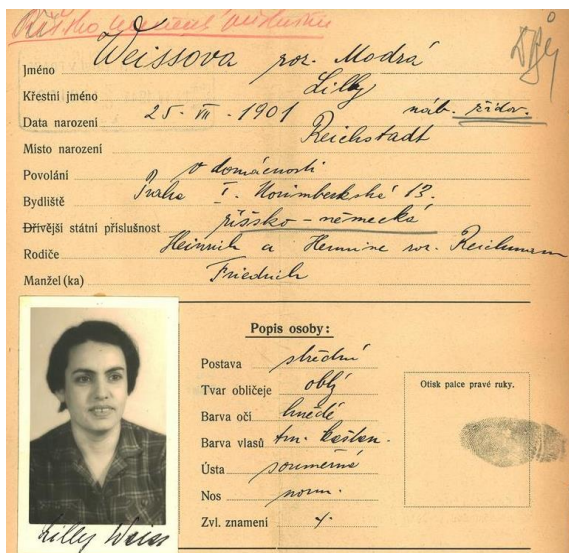 Říšsko německá
Jméno Weissova roz. Modrá
Křestní jméno Lilly
Data narození 25. VII. 1901 náb. židov.
Místo narození Reichstadt
Povolání v domácnosti
Bydliště Praha I. Norimberkská 13.
Dřívější státní příslušnost říšsko-německá
Rodiče Heinrich a Hermine roz. Reichmann
Manžel(ka) Friedrich
Popis osoby:
Postava střední
Tvar obličeje oblý
Barva očí hnědé
Barva vlasů tm. kaštan.
Ústa souměrná
Nos norm.
Zvl. znamení
Otisk palce pravé ruky.
Lilly Weiss